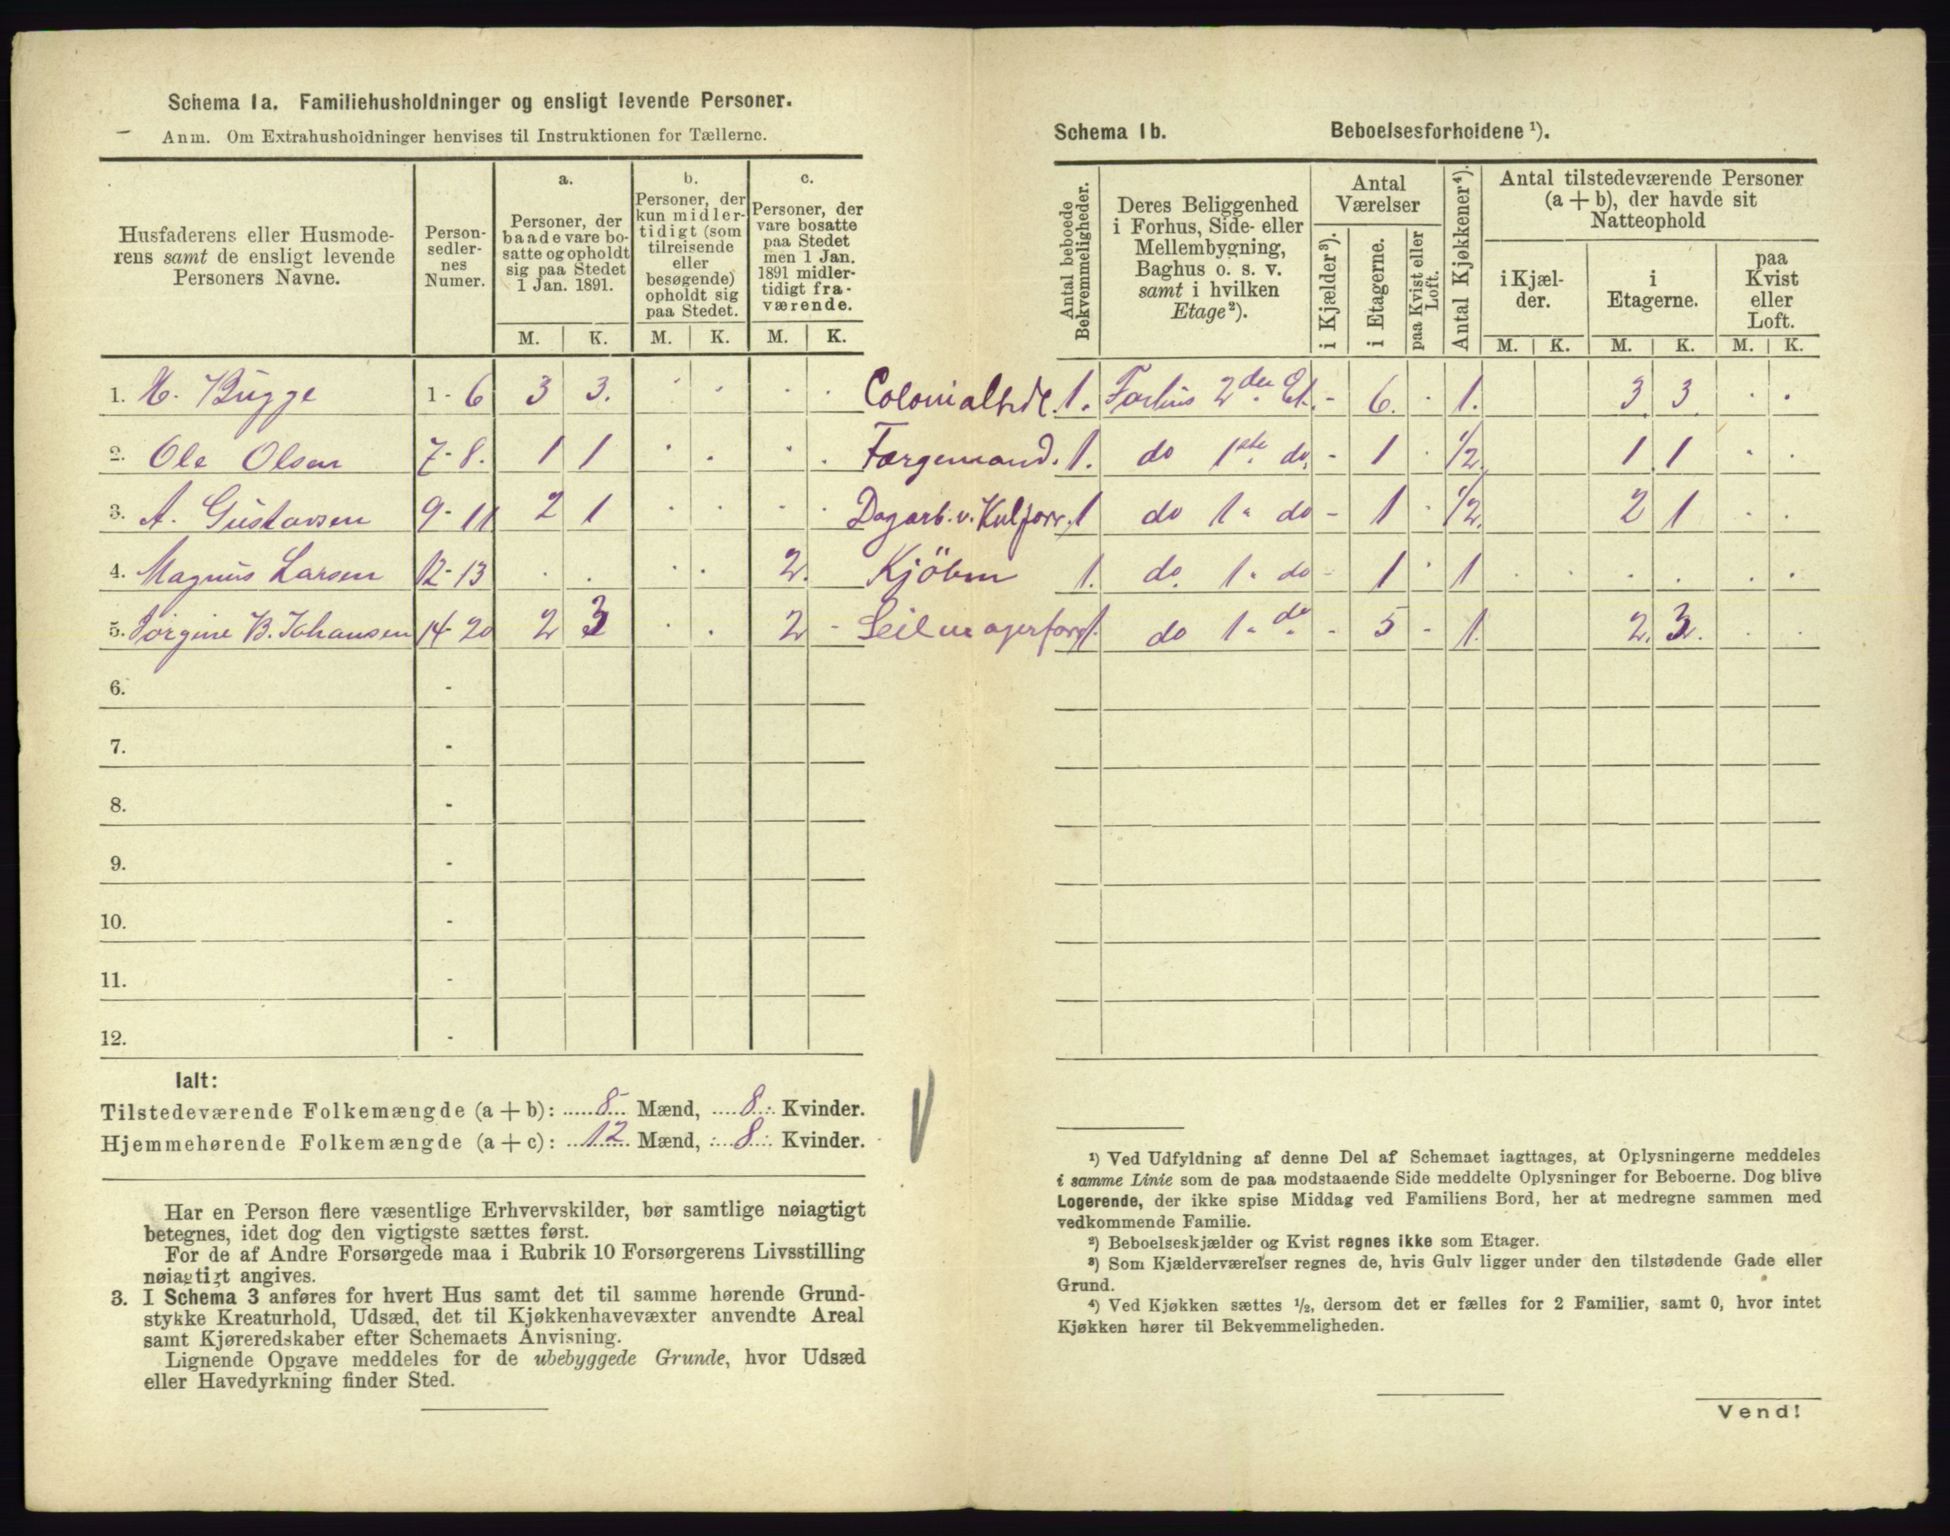 Schema 1a. Familiehusholdninger og ensligt levende Personer.
Anm. Om Extrahusholdninger henvises til Instruktionen for Tællerne.
Husfaderens eller Husmode-
rens samt de ensligt levende
Personers Navne.
Person-
sedler-
nes
Numer.
a.
Personer, der
baade vare bo-
satte og opholdt
sig paa Stedet
1 Jan. 1891.
b.
Personer, der
kun midler-
tidigt (som
tilreisende
eller
besøgende)
opholdt sig
paa Stedet.
c.
Personer, der
vare bosatte
paa Stedet
men 1 Jan.
1891 midler-
tidigt fra-
værende.
M. K. M. K. M. K.
1. H. Bugge 1 - 6 3 3. Colonialhdl.
2. Ole Olsen 7-8. 1 1 Færgemand.
3. A. Gustavsen 9-11 2 1 Dagarb. v. Kulforr.
4. Magnus Larsen 12-13 2. Kjöbm
5. Jörgine B. Johansen 14-20 2 3 2 - Seilmagerforr
6. -
7. -
8. -
9. -
10. -
11. -
12. -
Ialt:
Tilstedeværende Folkemængde (a + b): 8 Mænd, 8 Kvinder.
Hjemmehørende Folkemængde (a + c): 12 Mænd, 8 Kvinder.
Har en Person flere væsentlige Erhvervskilder, bør samtlige nøiagtigt
betegnes, idet dog den vigtigste sættes først.
For de af Andre Forsørgede maa i Rubrik 10 Forsørgerens Livsstilling
nøiagtigt angives.
3. I Schema 3 anføres for hvert Hus samt det til samme hørende Grund-
stykke Kreaturhold, Udsæd, det til Kjøkkenhavevæxter anvendte Areal
samt Kjøreredskaber efter Schemaets Anvisning.
Lignende Opgave meddeles for de ubebyggede Grunde, hvor Udsæd
eller Havedyrkning finder Sted.
Schema 1b. Beboelsesforholdene ¹).
Antal beboede
Bekvemmeligheder.
Deres Beliggenhed
i Forhus, Side- eller
Mellembygning,
Baghus o. s. v.
samt i hvilken
Etage²).
Antal
Værelser
i Kjælder³).
i Etagerne.
paa Kvist eller
Loft.
Antal Kjøkkener⁴).
Antal tilstedeværende Personer
(a + b), der havde sit
Natteophold
i Kjæl-
der.
i
Etagerne.
paa
Kvist
eller
Loft.
M. K. M. K. M. K.
1. Forhus 2den Et. - 6. 1. 3. 3.
1. do 1ste do. - 1 1/2. 1 1
1 do 1" do - 1 1/2. 2 1
1. do. 1" do - 1 1
1. do 1" do - 5 - 1. 2. 3.
¹) Ved Udfyldning af denne Del af Schemaet iagttages, at Oplysningerne meddeles
i samme Linie som de paa modstaaende Side meddelte Oplysninger for Beboerne. Dog blive
Logerende, der ikke spise Middag ved Familiens Bord, her at medregne sammen med
vedkommende Familie.
²) Beboelseskjælder og Kvist regnes ikke som Etager.
³) Som Kjælderværelser regnes de, hvis Gulv ligger under den tilstødende Gade eller
Grund.
⁴) Ved Kjøkken sættes ½, dersom det er fælles for 2 Familier, samt 0, hvor intet
Kjøkken hører til Bekvemmeligheden.
Vend!